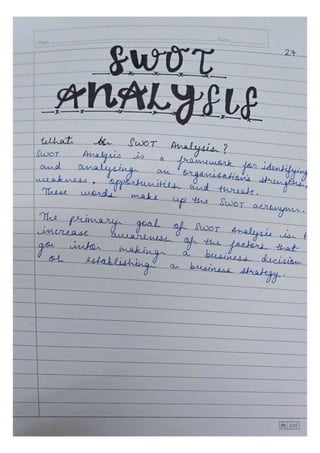 Date
27
SWOT
ANALYSIS
What is SWOT Analysis?
SWOT Analysis is a framework for identifying
and analysing an organisation's strengths,
weakness, opportunities and threats.
These words make up the SWOT acronym.
The primary goal of SWOT Analysis is t
increase awareness of the factors that
go into making a business decision
or establishing a business strategy.